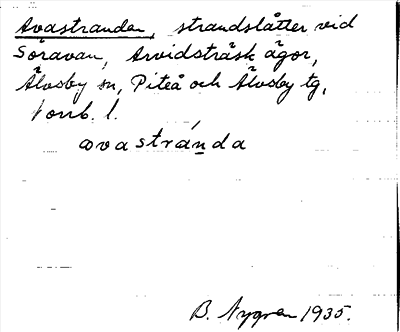 Avastranden, strandslåtter vid
Söravan, Arvidsträsk ägor,
Älvsby sn, Piteå och Älvsby tg,
Norrb. l.
avastránda
B. Nygren 1935.